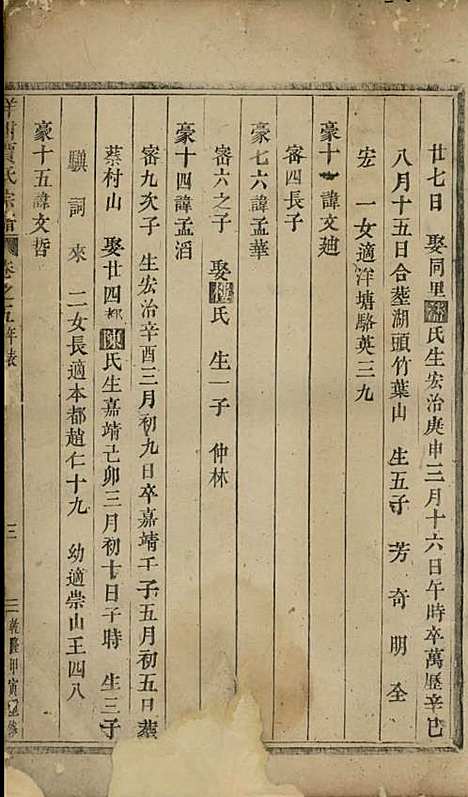 廿七日 娶同里氏生宏治庚申三月十六日午時卒萬歷辛巳
八月十五日合塟湖頭竹葉山 生五子 芳奇明全
宏 一女適洋塘駱英三九
豪十 諱文廸
審四長子
豪七六諱孟華
審六之子 娶樓氏 生一子 仲林
豪十四諱孟滔
審九次子 生宏治辛酉三月初九日卒嘉靖壬子五月初五日塟
蔡村山 娶廿四都陳氏生嘉靖己卯三月初十日子時 生三子
騏詞來 二女長適本都趙仁十九 幼適崇山王四八
豪十五諱文哲
賈氏宗譜 卷之五年表 三 乾隆甲寅重修